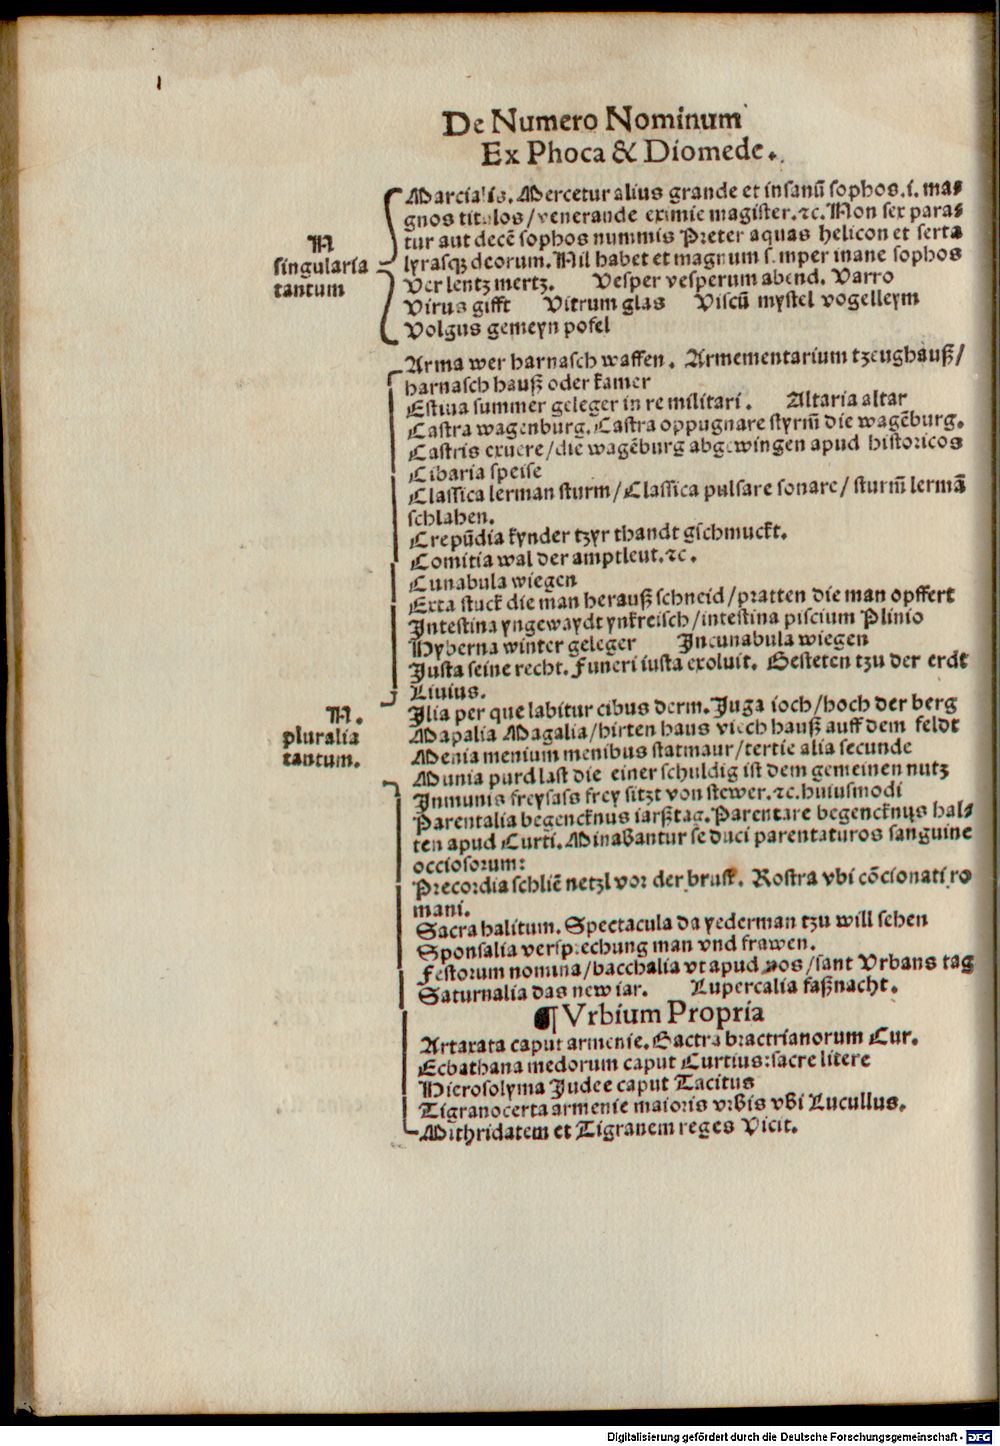 De Numero Nominum
Ex Phoca & Diomede.
Marcialis. Mercetur alius grande et insanū sophos. i. ma⸗
gnos titulos/venerande eximie magister. ⁊c. Non sex para⸗
tur aut decē sophos nummis Preter aquas helicon et serta
N
singularia
tantum
lyrasqȝ deorum. Nil habet et magnum semper inane sophos
Ver lentz mertz. Vesper vesperum abend. Varro
Virus gifft Vitrum glas Viscū mystel vogelleym
Volgus gemeyn pofel
Arma wer harnasch waffen. Armementarium tzeughauß/
harnasch hauß oder kamer
Estiua summer geleger in re militari. Altaria altar
Castra wagenburg. Castra oppugnare styrm̄ die wagēburg.
Castris exuere/die wagēburg abgewingen apud historicos
Cibaria speise
Classica lerman sturm/Classica pulsare sonare/ sturm̄ lermā
schlahen.
Crepūdia kynder tzyr thandt gschmuckt.
Comitia wal der amptleut. ⁊c.
Cunabula wiegen
Exta stuck die man herauß schneid/pratten die man opffert
Intestina yngewaydt ynkreisch/intestina piscium Plinio
Hyberna winter geleger Incunabula wiegen
Justa seine recht. Funeri iusta exoluit. Gesteten tzu der erdt
Liuius.
N.
pluralia
tantum.
Ilia per que labitur cibus derm. Juga ioch/hoch der berg
Mapalia Magalia/hirten haus viech hauß auff dem feldt
Menia menium menibus statmaur/tertie alia secunde
Munia purd last die einer schuldig ist dem gemeinen nutz
Inmunis freysass frey sitzt von stewer. ⁊c. huiusmodi
Parentalia begencknus iarßtag. Parentare begencknus hal⸗
ten apud Curti. Minabantur se duci parentaturos sanguine
occiosorum:
Precordia schliē netzl vor der brust. Rostra vbi cōcionati ro
mani.
Sacra halitum. Spectacula da yederman tzu will sehen
Sponsalia versprechung man vnd frawen.
Festorum nomina/bacchalia vt apud nos/sant Vrbans tag
Saturnalia das new iar. Lupercalia faßnacht.
¶ Vrbium Propria
Artaxata caput armenie. Bactra bractrianorum Cur.
Ecbathana medorum caput Curtius: sacre litere
Hierosolyma Judee caput Tacitus
Tigranocerta armenie maioris vrbis vbi Lucullus.
Mithridatem et Tigranem reges Vicit.
Digitalisierung gefördert durch die Deutsche Forschungsgemeinschaft - DFG